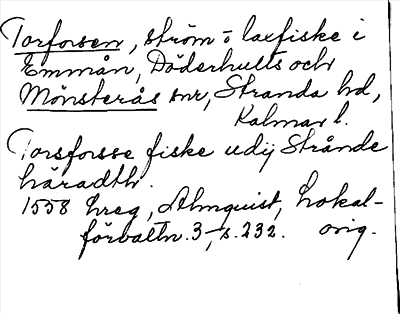 Torforsen, ström o laxfiske i
Emmån, Döderhults och
Mönsterås snr, Stranda hd,
Kalmar l.
Torsforsse fiske udij Strånde
häradth.
1558 hreg, Almquist, Lokal-
förvaltn. 3, s. 232. orig.